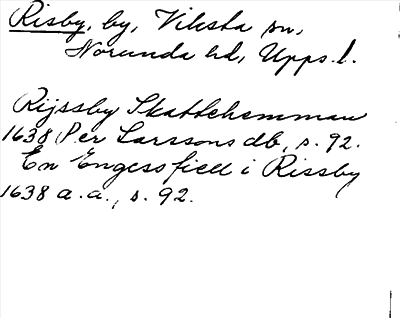 Risby, by, Viksta sn,
Norunda hd, Upps. l.
Rijssby Skattehemman
1638 Per Larssons db, s. 92.
En Engessfiell i Rissby
1638 a.a., s. 92.